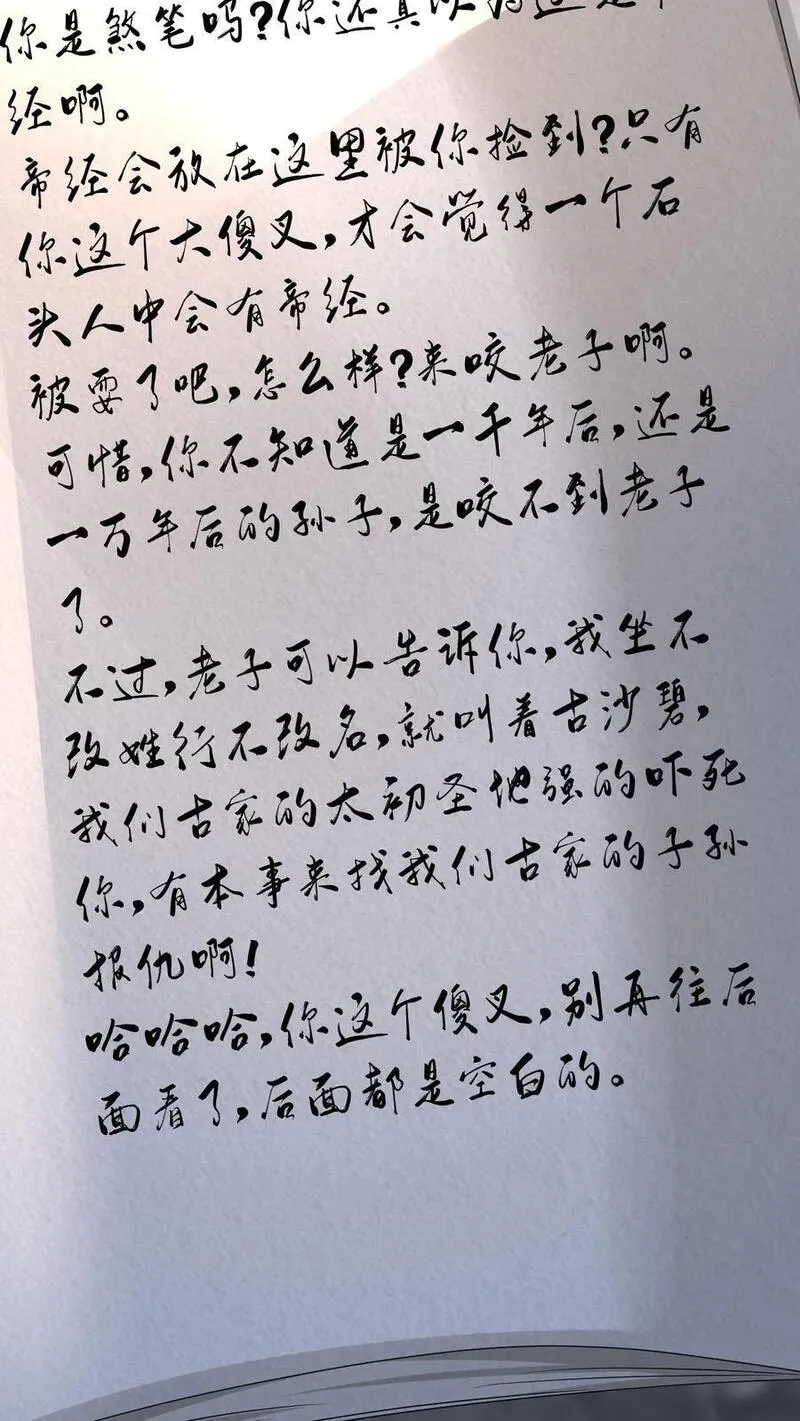 你是煞笔吗?你还真以为这是帝
经啊。
帝经会放在这里被你捡到?只有
你这个大傻叉,才会觉得一个石
头人中会有帝经。
被耍了吧,怎么样?来咬老子啊。
可惜,你不知道是一千年后,还是
一万年后的孙子,是咬不到老子
了。
不过,老子可以告诉你,我坐不
改姓行不改名,就叫着古沙碧,
我们古家的太初圣地强的吓死
你,有本事来找我们古家的子孙
报仇啊!
哈哈哈,你这个傻叉,别再往后
面看了,后面都是空白的。